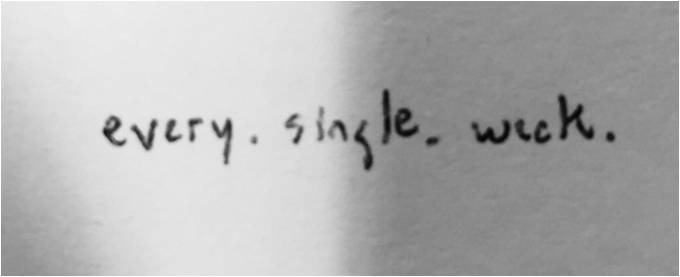 every. single. week.